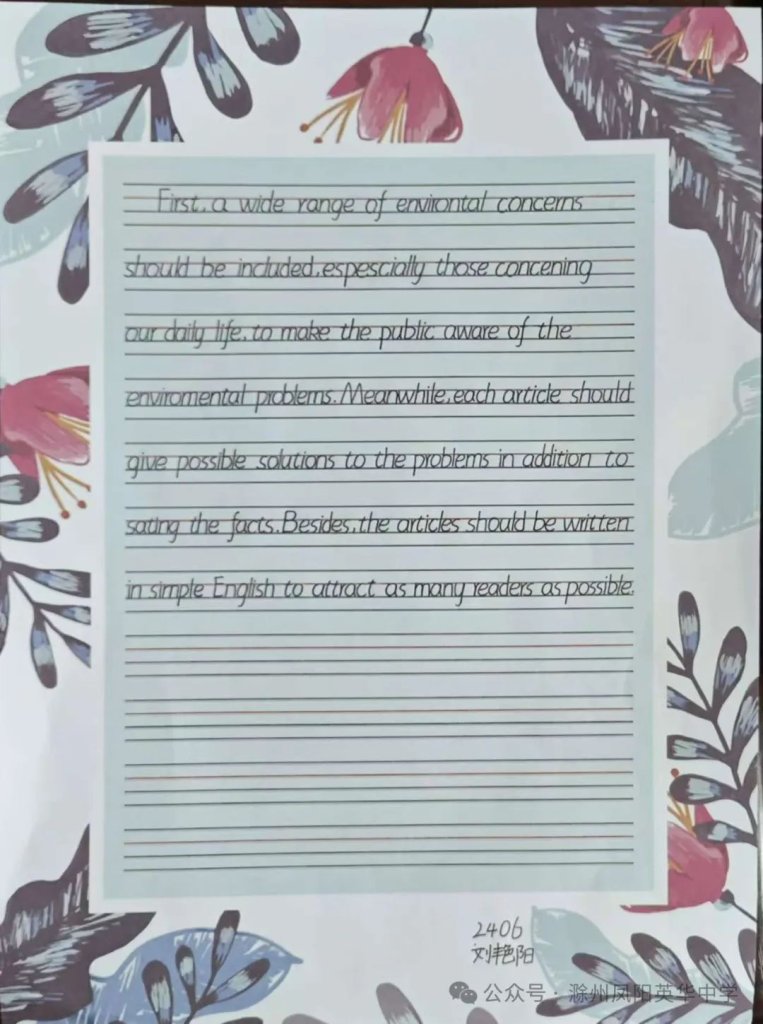 First, a wide range of environtal concerns
should be included, espescially those concening
our daily life, to make the public aware of the
enviromental problems. Meanwhile, each article should
give possible solutions to the problems in addition to
sating the facts. Besides, the articles should be written
in simple English to attract as many readers as possible.
2406
刘艳阳
公众号·滁州凤阳英华中学